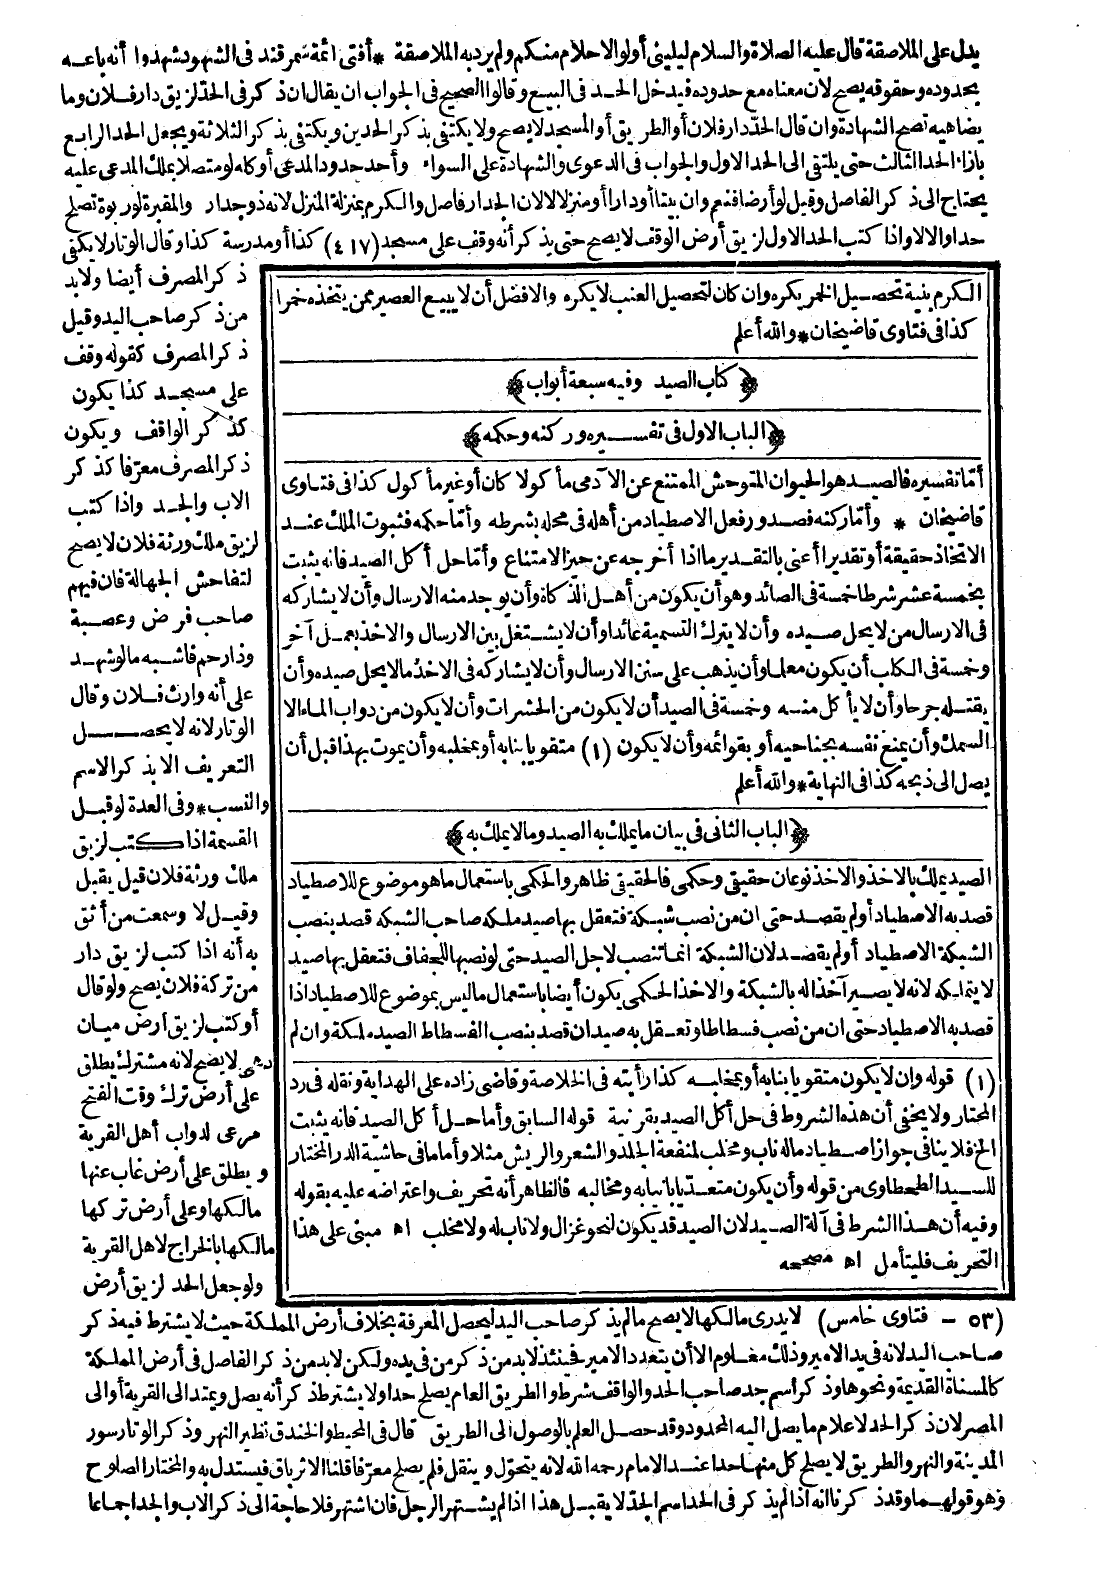 يدل على الملاصقة قال عليه الصلاة والسلام ليليني أولو الاحلام منكم ولم يرد به الملاصقة * أفتى ائمة سمرقند فى الشهود شهدوا أنه باعه
بحدوده وحقوقه يصح لان معناه مع حدوده فيدخل الحد فى البيع وقالوا الصحيح فى الجواب ان يقال ان ذكر فى الحد لزيق دار فلان وما
يضاهيه تصح الشهادة وان قال الحد دار فلان أو الطريق أو المسجد لا يصح ولا يكتفى بذكر الحدين ويكتفى بذكر الثلاثة ويجعل الحد الرابع
بازاء الحد الثالث حتى يلتقى الى الحد الاول والجواب فى الدعوى والشهادة على السواء وأحد حدود المدعى أو كله لو متصلا بملك المدعى عليه
يحتاج الى ذكر الفاصل وقيل لو أرضا فنعم وان بيتا أو دارا أو منزلا لا لان الجدار فاصل والكرم بمنزلة المنزل لانه ذو جدار والمقبرة لو ربوة تصلح
حدا والا لا واذا كتب الحد الاول لزيق أرض الوقف لا يصح حتى يذكر أنه وقف على مسجد (٤١٧) كذا أو مدرسة كذا وقال الوتار لا يكتفى
ذكر المصرف أيضا ولابد
من ذكر صاحب اليد وقيل
ذكر المصرف كقوله وقف
على مسجد كذا يكون
كذكر الواقف ويكون
ذكر المصرف معرفا كذكر
الاب والجد واذا كتب
لزيق ملك ورثة فلان لا يصح
لتفاحش الجهالة فان فيهم
صاحب فرض وعصبة
وذا رحم فاشبه ما لو شهد
على أنه وارث فلان وقال
الوتار لانه لا يحصل
التعريف الا بذكر الاسم
والنسب * وفى العدة لو قبل
القسمة اذا كتب لزيق
ملك ورثة فلان قيل يقبل
وقيل لا وسمعت من أثق
به أنه اذا كتب لزيق دار
من تركة فلان يصح ولو قال
أو كتب لزيق أرض ميان
دهى لا يصح لانه مشترك يطلق
على أرض ترك وقت الفتح
مرعى لدواب أهل القرية
ويطلق على أرض غاب عنها
مالكها وعلى أرض تركها
مالكها بالخراج لاهل القرية
ولو جعل الحد لزيق أرض
الكرم بنية تحصيل الخمر يكره وان كان لتحصيل العنب لا يكره والافضل أن لا يبيع العصير ممن يتخذه خمرا
كذا فى فتاوى قاضيخان * والله أعلم
﴿ كتاب الصيد وفيه سبعة أبواب ﴾
﴿ الباب الاول فى تفسيره وركنه وحكمه ﴾
أما تفسيره فالصيد هو الحيوان المتوحش الممتنع عن الآدمى مأكولا كان أو غير مأكول كذا فى فتاوى
قاضيخان * وأما ركنه فصدور فعل الاصطياد من أهله فى محله بشرطه وأما حكمه فثبوت الملك عند
الاتخاذ حقيقة أو تقديرا أعنى بالتقدير ما اذا أخرجه عن حيز الامتناع وأما حل أكل الصيد فانه يثبت
بخمسة عشر شرطا خمسة فى الصائد وهو أن يكون من أهل الذكاة وأن يوجد منه الارسال وأن لا يشاركه
فى الارسال من لا يحل صيده وأن لا يترك التسمية عائدا وأن لا يشتغل بين الارسال والاخذ بعمل آخر
وخمسة فى الكلب أن يكون معلما وأن يذهب على سنن الارسال وأن لا يشاركه فى الاخذ ما لا يحل صيده وأن
يقتله جرحا وأن لا يأكل منه وخمسة فى الصيد أن لا يكون من الحشرات وأن لا يكون من دواب الماء الا
السمك وأن يمنع نفسه بجناحيه أو بقوائمه وأن لا يكون (١) متقويا بنابه أو بمخلبه وأن يموت بهذا قبل أن
يصل الى ذبحه كذا فى النهاية * والله أعلم
﴿ الباب الثانى فى بيان ما يملك به الصيد وما لا يملك به ﴾
الصيد يملك بالاخذ والاخذ نوعان حقيقى وحكمى فالحقيقى ظاهر والحكمى باستعمال ما هو موضوع للاصطياد
قصد به الاصطياد أو لم يقصد حتى ان من نصب شبكة فتعقل بها صيد ملكه صاحب الشبكة قصد بنصب
الشبكة الاصطياد أو لم يقصد لان الشبكة انما تنصب لاجل الصيد حتى لو نصبها للجفاف فتعقل بها صيد
لا يتملكه لانه لا يصير آخذا له بالشبكة والاخذ الحكمى يكون أيضا باستعمال ما ليس بموضوع للاصطياد اذا
قصد به الاصطياد حتى ان من نصب فسطاطا وتعقل به صيد ان قصد بنصب الفسطاط الصيد ملكه وان لم
(١) قوله وان لا يكون متقويا بنابه أو بمخلبه كذا رأيته فى الخلاصة وقاضى زاده على الهداية ونقله فى رد
المحتار ولا يخفى أن هذه الشروط فى حل أكل الصيد بقرينة قوله السابق وأما حل أكل الصيد فانه يثبت
الخ فلا ينافى جواز اصطياد ماله ناب ومخلب لمنفعة الجلد والشعر والريش مثلا وأما ما فى حاشية الدر المختار
للسيد الطحطاوى من قوله وأن يكون متعديا بانيابه ومخالبه فالظاهر أنه تحريف واعتراضه عليه بقوله
وفيه أن هذا الشرط فى آلة الصيد لان الصيد قد يكون لنحو غزال ولا ناب له ولا مخلب اه مبنى على هذا
التحريف فليتأمل اه مصححه
(٥٣ - فتاوى خامس) لا يدرى مالكها لا يصح ما لم يذكر صاحب اليد ليحصل المعرفة بخلاف أرض المملكة حيث لا يشترط فيه ذكر
صاحب اليد لانه فى يد الامير وذلك معلوم الا أن يتعدد الامير فحينئذ لابد من ذكر من فى يده ولكن لابد من ذكر الفاصل فى أرض المملكة
كالمسناة القديمة ونحوها وذكر اسم جد صاحب الحد والواقف شرط والطريق العام يصلح حدا ولا يشترط ذكر أنه يصل ويمتد الى القرية أو الى
المصر لان ذكر الحد لاعلام ما يصل اليه المحدود وقد حصل العلم بالوصول الى الطريق قال فى المحيط والخندق نظير النهر وذكر الوتار سور
المدينة والنهر والطريق لا يصلح كل منها حدا عند الامام رحمه الله لانه يتحول وينقل فلم يصلح معرفا قلنا الاثر باق فيستدل به والمختار الصلوح
وهو قولهما وقد ذكرنا انه اذا لم يذكر فى الحد اسم الجد لا يقبل هذا اذا لم يشتهر الرجل فان اشتهر فلا حاجة الى ذكر الاب والجد اجماعا